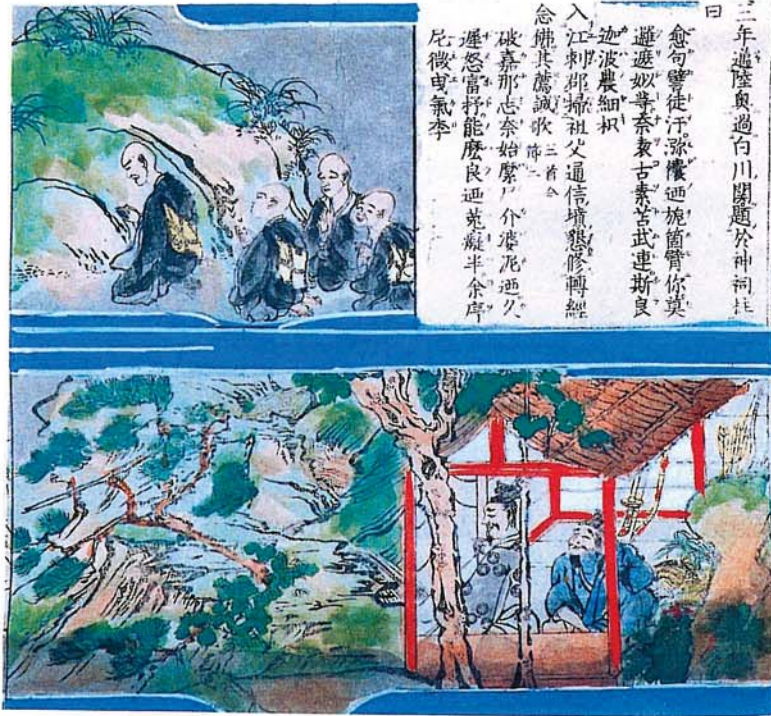 三年過陸奥過白川關題於神祠柱
曰
愈句譬徒汙弥懐迺旎箇臂你莫
邏遮姒等奈袁古素苦武連斯良
迦波農細枳
入江刺郡掃祖父通信墳懇修轉經
念佛其薦誠歌 三首今節二
破嘉那志奈始縻尸介婆泥迺久
遲怒富抒能麽良迺菟癡半余庠
尼微曳氣李